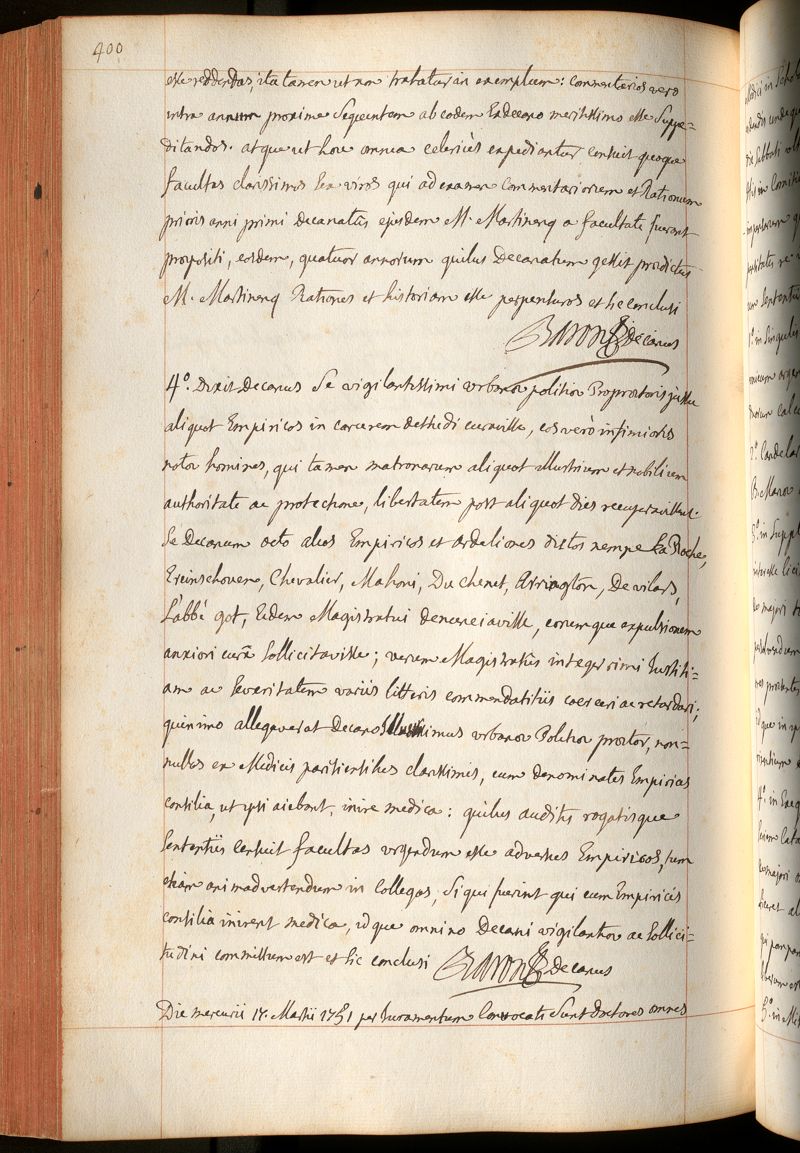 400
esse reddendas, ita tamen ut non trahatur in exemplum: commentarios vero
intra annum proxime Sequentem ab eodem Exdecano meritissimo esse Suppe=
ditandos. atque ut hoec omnia celeriùs expediantur censuit quoque
facultas clarissimos Sex viros qui ad examen Commentariorum et Rationum
prioris anni primi Decanatûs ejusdem M. Martinenq a facultate fuerant
propositi, eosdem, quatuor annorum quibus Decanatum gessit prædictus
M. Martinenq Rationes et historiam esse perpensuros et sic conclusi
Baron Decanus
4°. Dixit Decanus Se vigilantissimi urbanæ politiæ Proprætoris jussu
aliquot Empiricos in carcerem dethrudi curavisse, eos verò infimioris
notæ homines, qui tamen matronarum aliquot illustrium et nobilium
authoritate ac protectione, libertatem post aliquot dies recuperavissent.
Se Decanum octo alios Empiricos et ardeliones dictos nempe La Roche,
Ereinschoven, Chevalier, Mahoni, Du chenet, Arrington, De vilars,
L'abbé got, Eidem Magistratui denunciavisse, eorumque expulsionem
anxiori curâ Sollicitavisse; verum Magistratûs integerrimi Justiti=
am ac Severitatem variis litteris commendatitiis coerceri ac retardari;
quinimo allegaverat Decano Illustrissimus urbanæ Politiæ prætor, non=
nullos ex Medicis parisiensibus clarissimis, cum denominatis Empiricis
consilia, ut ipsi aiebant, inire medica: quibus auditis rogatisque
Sententiis censuit facultas urgendum esse adversus Empiricos, tum
etiam animadvertendum in Collegas, Si qui fuerint qui cum Empiricis
consilia inirent medica, idque omnino Decani vigilantiæ ac Sollici=
tudini commissum est et sic conclusi Baron Decanus
Die mercurii 17. Martii 1751 per Juramentum Convocati Sunt Doctores omnes